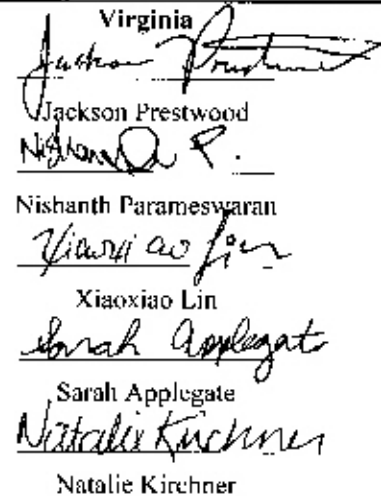 Virginia
Jackson Prestwood
Jackson Prestwood
Nishanth P.
Nishanth Parameswaran
Xiaoxiao Lin
Xiaoxiao Lin
Sarah Applegate
Sarah Applegate
Natalie Kirchner
Natalie Kirchner